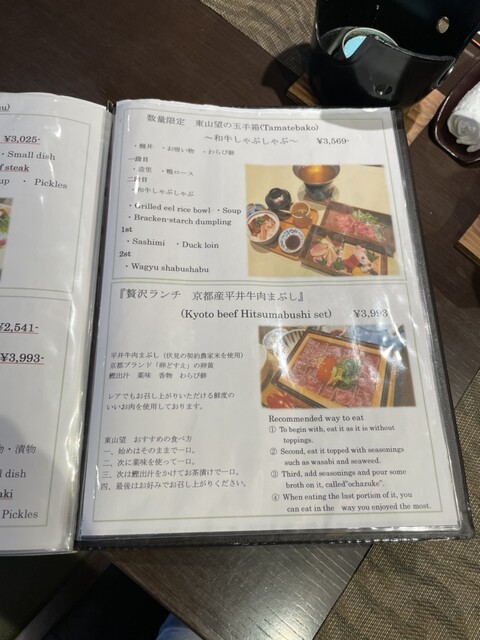 nu)
¥3,025-
・Small dish
f steak
up ・ Pickles
¥2,541-
¥3,993-
物・漬物
ll dish
aki
Pickles
数量限定 東山望の玉手箱(Tamatebako)
～和牛しゃぶしゃぶ～ ¥3,569-
・鰻丼 ・お吸い物 ・わらび餅
一段目
・造里 ・鴨ロース
二段目
和牛しゃぶしゃぶ
・Grilled eel rice bowl ・Soup
・Bracken-starch dumpling
1st
・Sashimi ・Duck loin
2st
・Wagyu shabushabu
『贅沢ランチ 京都産平井牛肉まぶし』
(Kyoto beef Hitsumabushi set) ¥3,993
平井牛肉まぶし（伏見の契約農家米を使用）
京都ブランド「卵どすえ」の卵黄
鰹出汁 薬味 香物 わらび餅
レアでもお召し上がりいただける鮮度の
いいお肉を使用しております。
東山望 おすすめの食べ方
一、始めはそのままで一口。
二、次に薬味を使って一口。
三、次は鰹出汁をかけてお茶漬けで一口。
四、最後はお好みでお召し上がりください。
Recommended way to eat
① To begin with, eat it as it is without
toppings.
② Second, eat it topped with seasonings
such as wasabi and seaweed.
③ Third, add seasonings and pour some
broth on it, called"ochazuke".
④ When eating the last portion of it, you
can eat in the way you enjoyed the most.